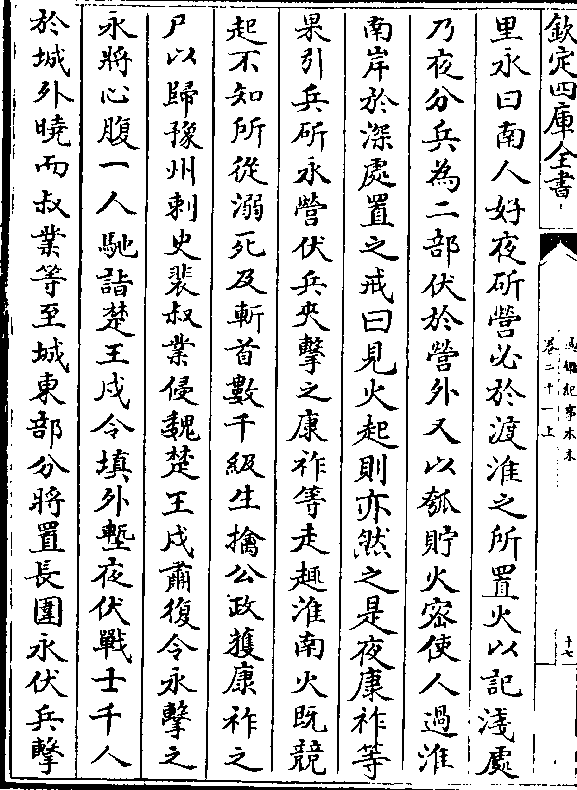 欽定四庫全書
通鑑紀事本末
卷二十一上
十七
里永曰南人好夜斫營必於渡淮之所置火以記淺處
乃夜分兵為二部伏於營外又以瓠貯火密使人過淮
南岸於深處置之戒曰見火起則亦然之是夜康祚等
果引兵斫永營伏兵夾擊之康祚等走趣淮南火既競
起不知所從溺死及斬首數千級生擒公政獲康祚之
尸以歸豫州刺史裴叔業侵魏楚王戍肅復令永擊之
永將心腹一人馳詣楚王戍令填外塹夜伏戰士千人
於城外曉而叔業等至城東部分將置長圍永伏兵擊